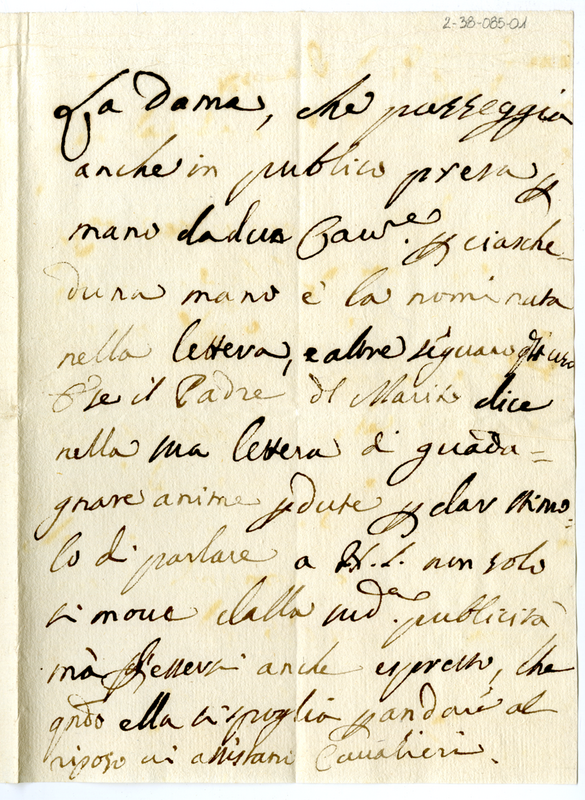 2-38-085-01
La Dama, che passeggia
anche in publico presa p
mano da due Cavre. p ciasche-
duna mano è la nominata
nella lettera, e altre
E se il Padre di Maria dice
nella sua lettera di guada=
gnare anime pdute p dar stimo=
lo di parlare a non solo
si move dalla suda. publicità
mà anche espresso, che
qndo ella si spoglia p andare al
riposo vi assistani Cavalieri.